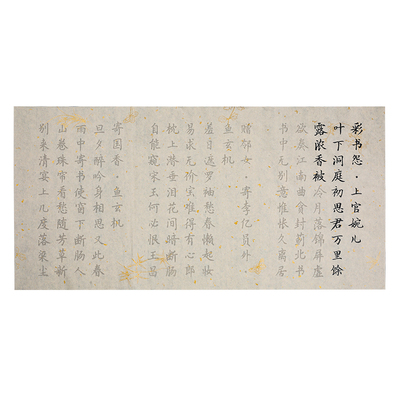 彩书怨·上官婉儿
叶下洞庭初思君万里馀
露浓香被冷月落锦屏虚
欲奏江南曲贪封蓟北书
书中无别意惟怅久离居
赠邻女·寄李亿员外·
鱼玄机
羞日遮罗袖愁春懒起妆
易求无价宝难得有心郎
枕上潜垂泪花间暗断肠
自能窥宋玉何必恨王昌
寄国香·鱼玄机
旦夕醉吟身相思又此春
雨中寄书使窗下断肠人
山卷珠帘看愁随芳草新
别来清宴上几度落梁尘